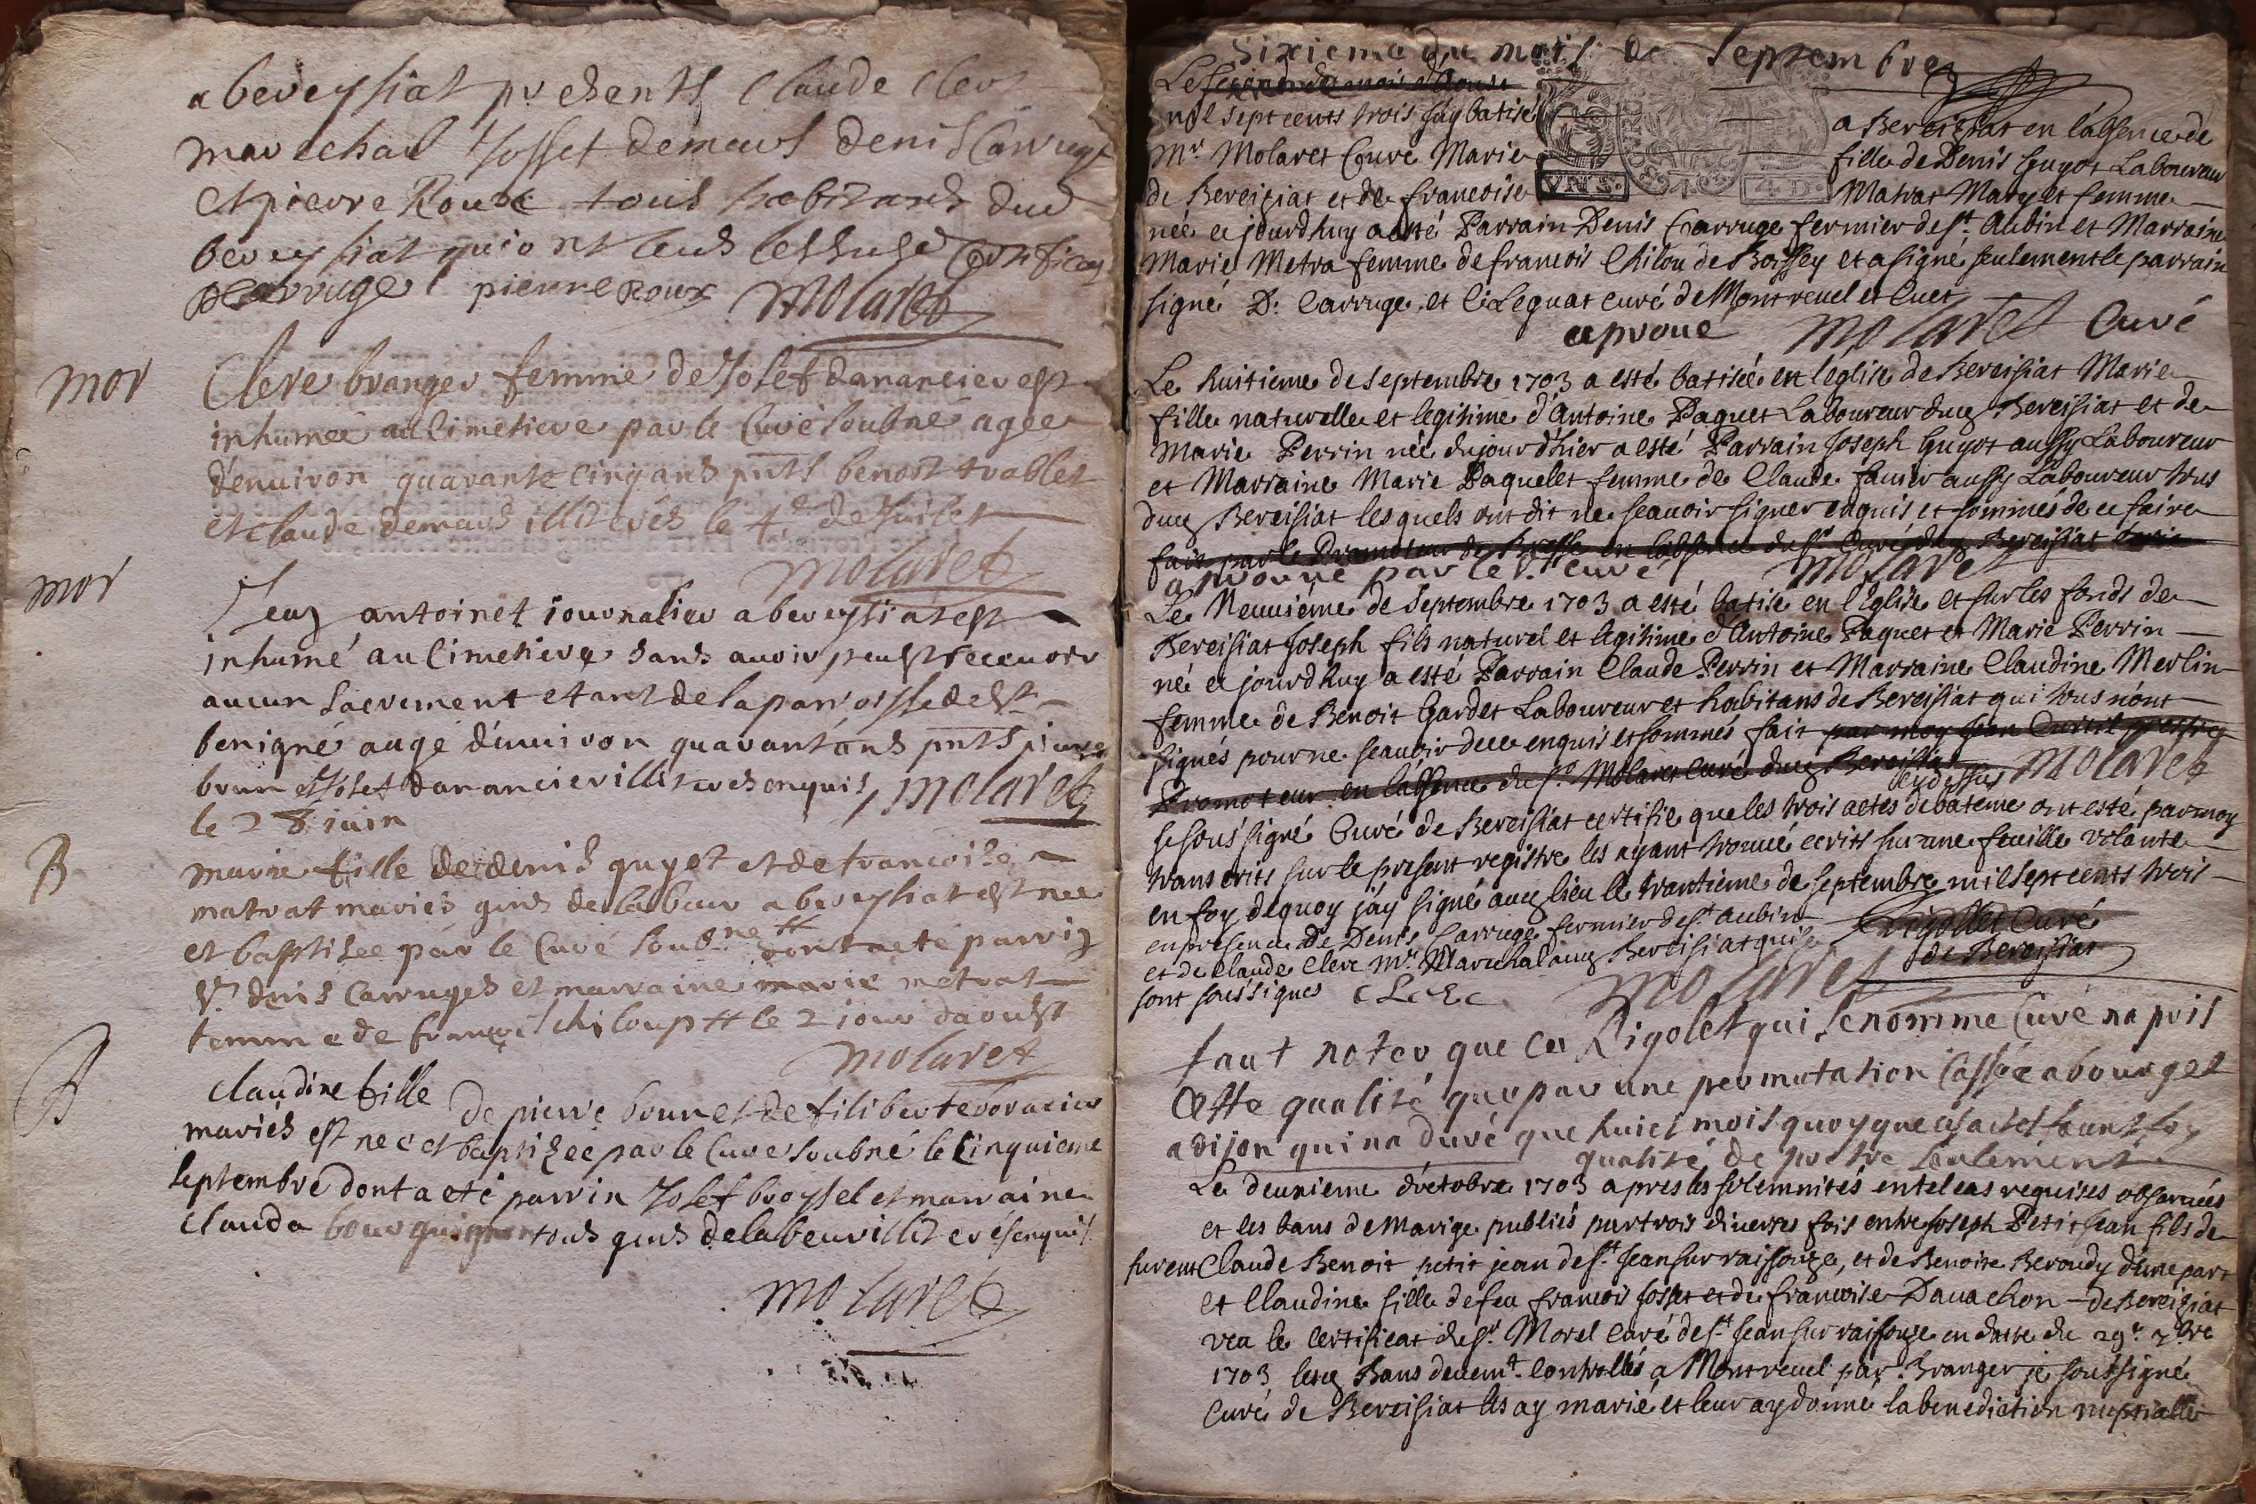 abereysiat presents Claude Clerc
marechal Josset demeurs denis Carruge
et pierre Roux tous habitans dud
bereysiat qui ont leus
DCarruge pierre Roux Molaret
mor
Clere branger femme de Josef danancier est
inhumée au Cimetiere par le Curé soubné agée
d'enuiron quarante cinq ans pnts benoit trablet
et claude demeurs illiterés le 4e de Juilet
Molaret
mor
antoinet iournalier a bereysiat est
inhumé au Cimetiere sans auoir peust receuoir
aucun sacrement etant de la parroisse de St
benigne augé d'enuiron quarant'ans pnts pierre
brun et Josef danancier illiterés enquis, Molaret
le 28 iuin
B
marie fille de denis guyot et de francoise
matrat mariés gens de labeur a bereysiat est nee
et baptisee par le Curé soubne # dont a eté parrin
Sr denis Carruges et marraine marie metrat
femme de françoi chiloup # le 2 iour daoust
Molaret
B
Claudine fille de pierre brun et de filiberte voracier
mariés est nee et baptisée par le Curé soubné le Cinquieme
septembre dont a eté parrin Josef broyssel et marraine
Clauda bourguignon tous gens de labeur illiterés enquis
Molaret
Sixieme du mois de Septembre
mil sept cents trois fuy batisé a Bereisiat en l'absence de
Mr Molaret Curé Marie fille de Denis Guyot Laboureur
de Bereiziat et de francoise Matrat Mary et femme
VNS 4 D
née ce jourdhuy a esté Parrain Denis Carruge fermier de St. Aubin et Marraine
Marie Metra femme de francois Chilou de Boissey et a signé seulement le parrain
signé D. Carruge et C. Lequat curé de Montreuel et Cuet
aproue Molaret Curé
Le huitieme de Septembre 1703 a esté batisée en l'eglise de Bereisiat Marie
fille naturelle et legitime d'Antoine Paquet Laboureur dud Bereisiat et de
Marie Perrin née du jour d'hier a esté Parrain Joseph Guyot aussy Laboureur
et Marraine Marie Paquelet femme de Claude fauier aussy Laboureur tous
dud Bereisiat lesquels ont dit ne sçauoir signer enquis et sommés de ce faire
fait par le Promoteur de Bresse en l'absence du Sr Curé dud Bereisiat
aprouué par le Sr curé Molaret
Le Neuuiéme de Septembre 1703 a esté batisé en l'eglise et sur les fonds de
Bereisiat Joseph fils naturel et legitime d'Antoine Paquet et Marie Perrin
né ce jourdhuy a esté Parrain Claude Perrin et Marraine Claudine Merlin
femme de Benoit Gardet Laboureur et habitans de Bereisiat qui tous n'ont
signés pour ne sçauoir de ce enquis et sommés fait par moy
Promoteur en l'absence du Sr Molaret curé dud Bereisiat Molaret
cydessus
Je sous signé Curé de Bereisiat certifie que les trois actes de bateme ont esté par moy
transcrits sur le present registre les ayant trouué ecrits sur une feuille volante
en foy dequoy j'ay signé aud lieu le trantieme de septembre mil sept cents trois
en presence de Denis Carruge fermier de St Aubin Rigollet Curé
et de Claude Clerc Mr Marechal aud Bereisiat qui se de Bereisiat
sont soussignes CLERC Molaret
faut noter que ce Rigolet qui se nomme Curé na pris
Cette qualité que par une permutation Cassée
a dijon qui na duré que huict mois quoyque
qualité de pretre seulement
Le deuxieme d'octobre 1703 apres les solemnités en tel cas requises obseruées
et les bans de Marige publiés par trois diuerses fois entre Joseph Petit Jean fils de
furent Claude Benoit petit jean de St. Jean sur raissouze, et de Benoite Beroudy d'une part
et Claudine fille de feu francois Josset et de francoise Dauachon de Bereiziat
veu le certificat du Sr. Morel Curé de St Jean sur raissouze en datte du 29e 7bre
1703 lesd Bans deuemt. controllés a Montreuel par Branger je soussigné
Curé de Bereisiat les ay marié et leur ay donné la benediction nuptialle